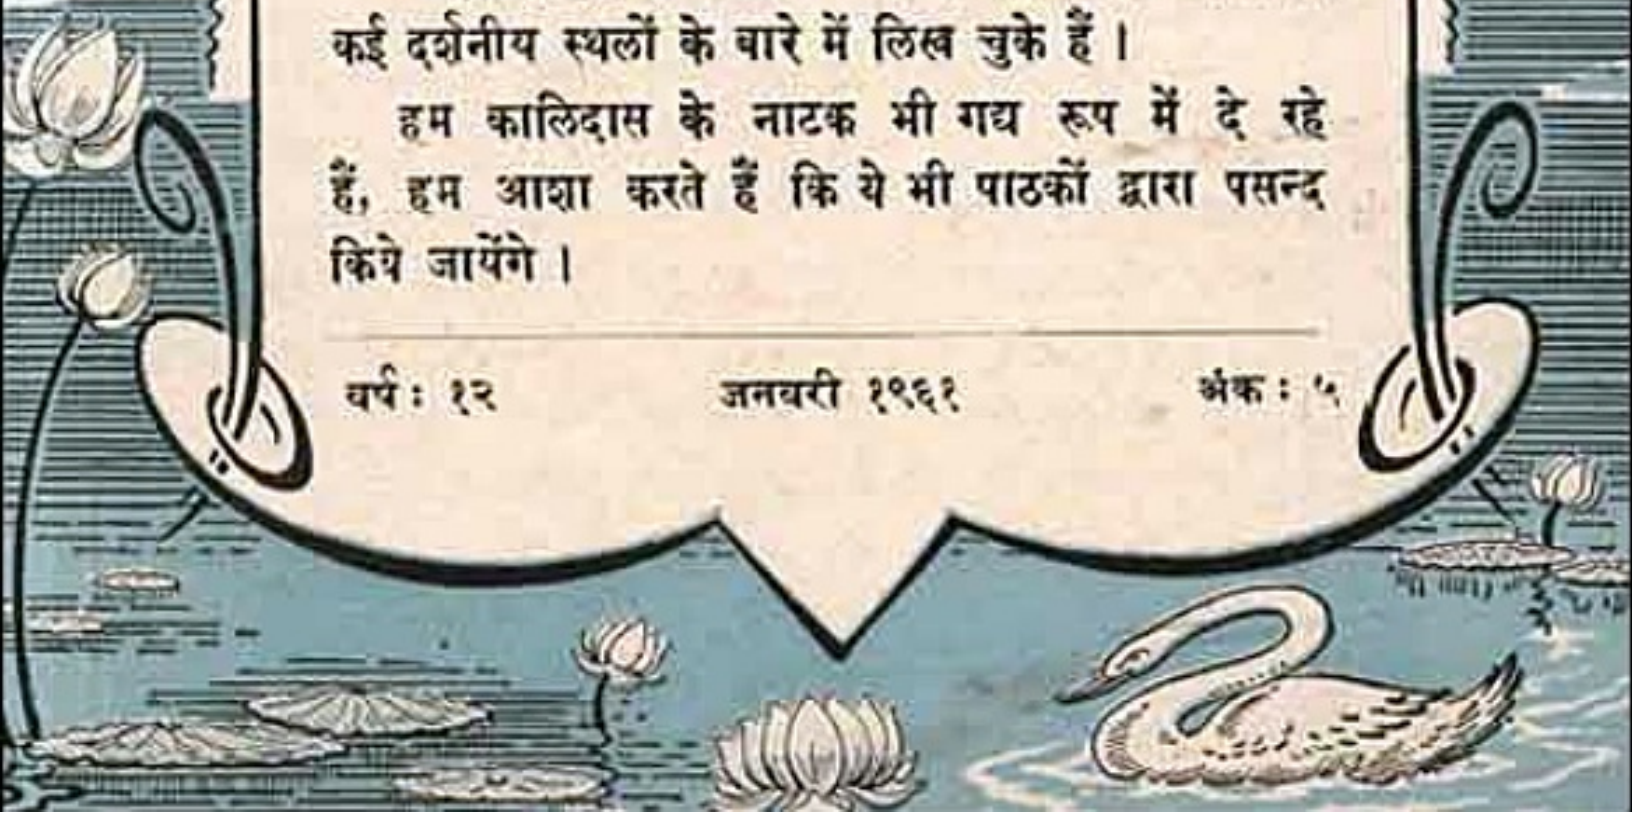 कई दर्शनीय स्थलों के बारे में लिख चुके हैं ।
हम कालिदास के नाटक भी गद्य रूप में दे रहे
हैं, हम आशा करते हैं कि ये भी पाठकों द्वारा पसन्द
किये जायेंगे ।
वर्ष : १२ जनवरी १९६१ अंक : ५